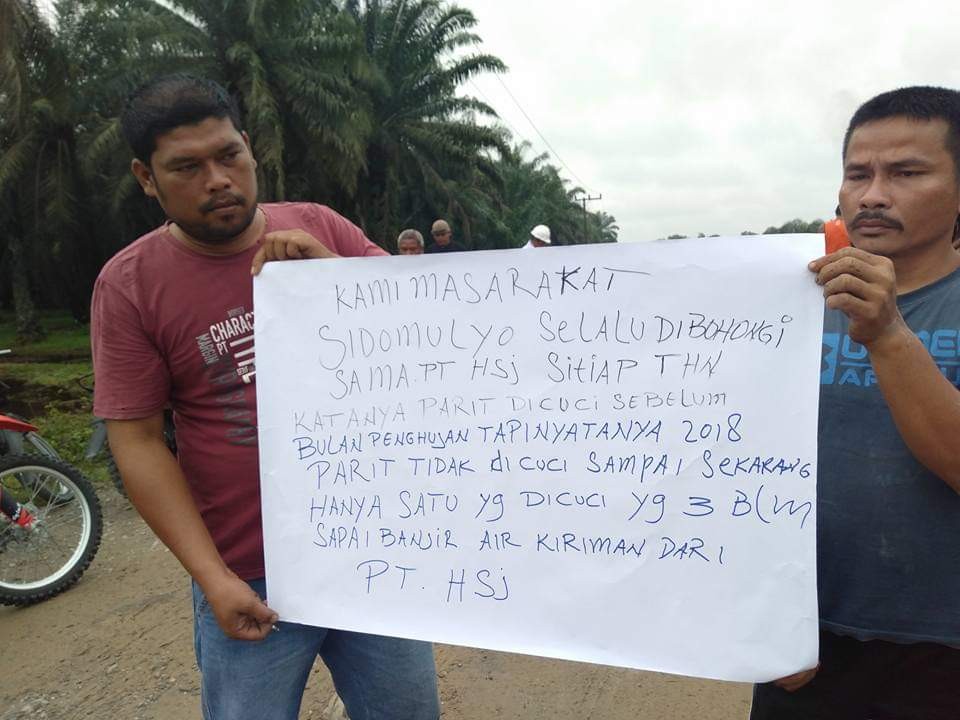 KAMI MASARAKAT
SIDOMULYO SELALU DIBOHONGI
SAMA.PT HSj SITIAP THN
KATANYA PARIT DICUCI SEBELUM
BULAN PENGHUJAN TAPINYATANYA 2018
PARIT TIDAK diCUCI SAMPAI SEKARANG
HANYA SATU yg DICUCI yg 3 BLM
SAPAI BANJIR AIR KIRIMAN DARI
PT. HSj
CHARACT
MARGIN
PT